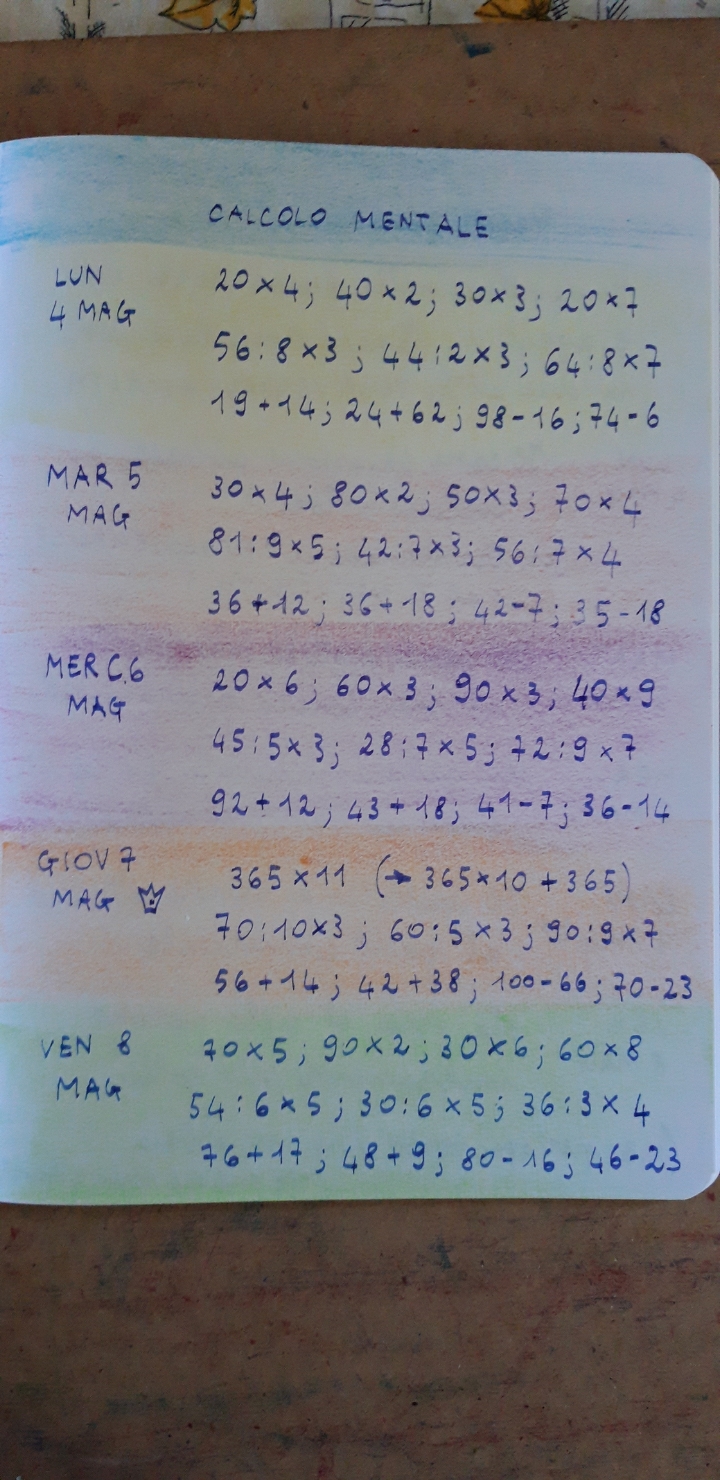 CALCOLO MENTALE
LUN 20×4; 40×2; 30×3; 20×7
4 MAG
56:8×3; 44:2×3; 64:8×7
19+14; 24+62; 98-16; 74-6
MAR 5 30×4; 80×2; 50×3; 70×4
MAG
81:9×5; 42:7×3; 56:7×4
36+12; 36+18; 42-7; 35-18
MERC.6 20×6; 60×3; 90×3; 40×9
MAG
45:5×3; 28:7×5; 72:9×7
92+12; 43+18; 41-7; 36-14
GIOV 7 365×11 (→ 365×10 + 365)
MAG
70:10×3; 60:5×3; 90:9×7
56+14; 42+38; 100-66; 70-23
VEN 8 70×5; 90×2; 30×6; 60×8
MAG
54:6×5; 30:6×5; 36:3×4
76+17; 48+9; 80-16; 46-23